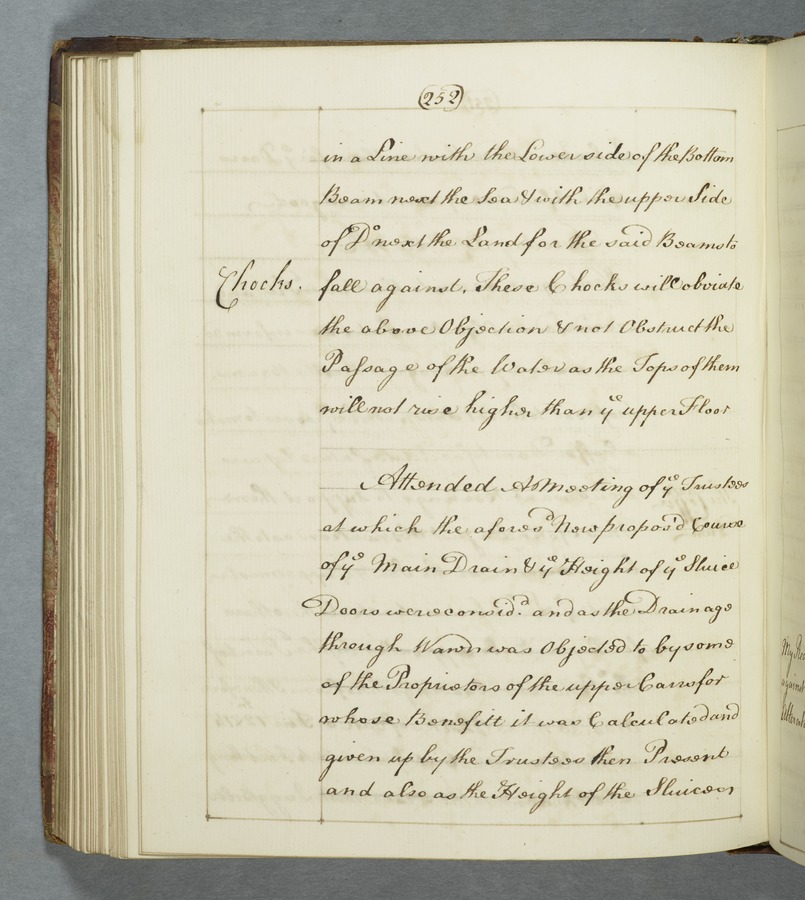 252
in a Line with the Lower side of the Bottom
Beam next the Sea & with the upper Side
of Do next the Land for the said Beams to
Chocks. fall against. These Chocks will obviate
the above Objection & not Obstruct the
Passage of the Water as the Tops of them
will not rise higher than ye upper Floor
Attended A Meeting of ye Trustees
at which the aforesd New propos'd Course
of ye Main Drain & ye Height of ye Sluice
Doors were consid.d and as the Drainage
through Wawn was Objected to by some
of the Proprietors of the upper Carrs for
whose Benefitt it was Calculated and
given up by the Trustees then Present
and also as the Height of the Sluice or
My
against